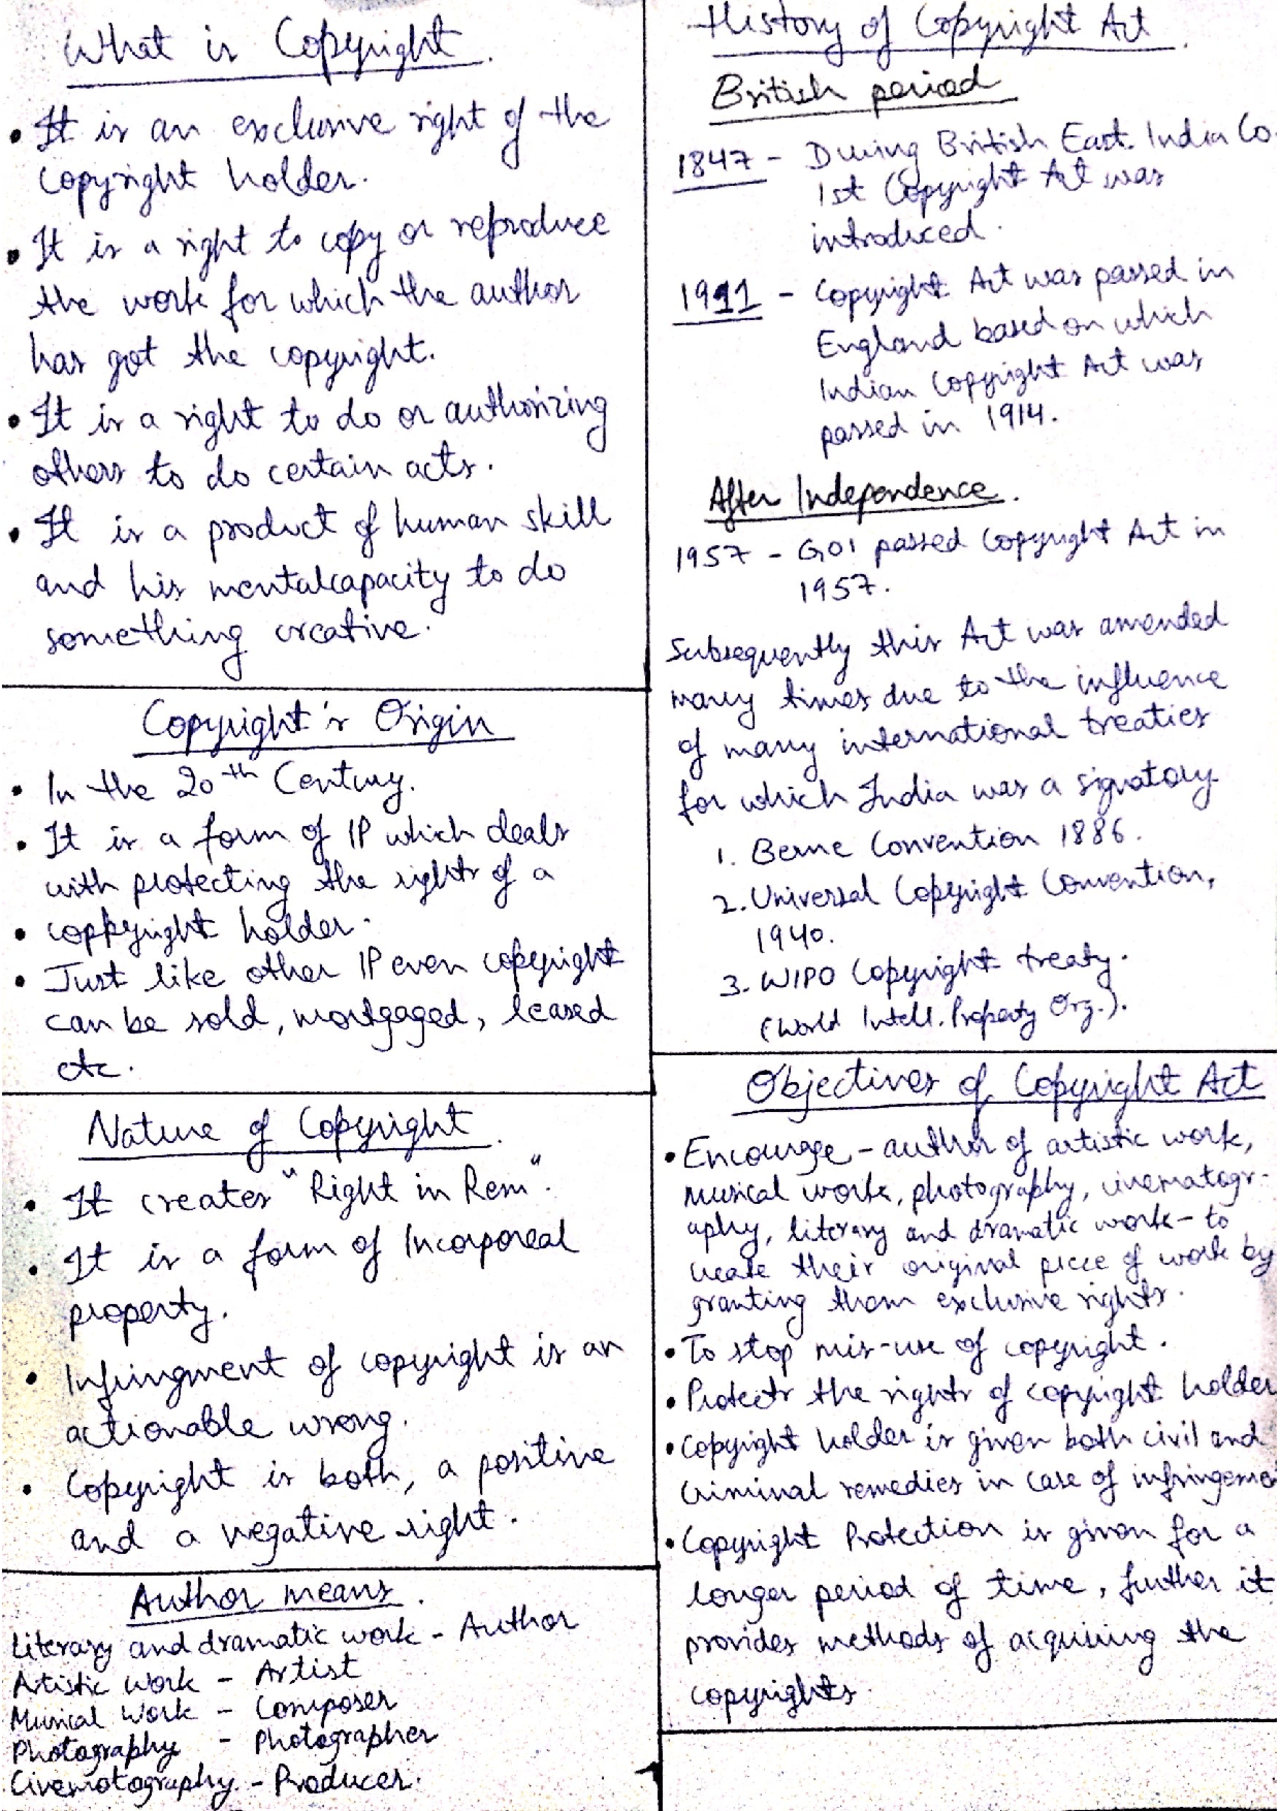 What is Copyright.
• It is an exclusive right of the
copyright holder.
• It is a right to copy or reproduce
the work for which the author
has got the copyright.
• It is a right to do or authorizing
others to do certain acts.
• It is a product of human skill
and his mentalcapacity to do
something creative.
Copyright's Origin
• In the 20th Century.
• It is a form of IP which deals
with protecting the rights of a
• copyright holder.
• Just like other IP even copyright
can be sold, mortgaged, leased
etc.
Nature of Copyright.
• It creates "Right in Rem".
• It is a form of Incorporeal
property.
• Infringment of copyright is an
actionable wrong.
• Copyright is both, a positive
and a negative right.
Author means.
Literary and dramatic work - Author
Artistic work - Artist
Musical Work - Composer
Photography - Photographer
Cinemotography - Producer.
History of Copyright Act.
British period
1847 - During British East. India Co.
1st Copyright Act was
introduced.
1911 - Copyright Act was passed in
England based on which
Indian Copyright Act was
passed in 1914.
After Independence.
1957 - GOI passed Copyright Act in
1957.
Subsequently this Act was amended
many times due to the influence
of many international treaties
for which India was a signatory.
1. Berne Convention 1886.
2. Universal Copyright Convention,
1940.
3. WIPO Copyright treaty.
(World Intell. Property Org.).
Objectives of Copyright Act
• Encourage - author of artistic work,
musical works, photography, cinematogr-
aphy, literary and dramatic work - to
create their original piece of work by
granting them exclusive rights.
• To stop mis-use of copyright.
• Protects the rights of copyright holder
• Copyright holder is given both civil and
Criminal remedies in case of infringemen
• Copyright Protection is given for a
longer period of time, further it
provides methods of acquiring the
copyrights.